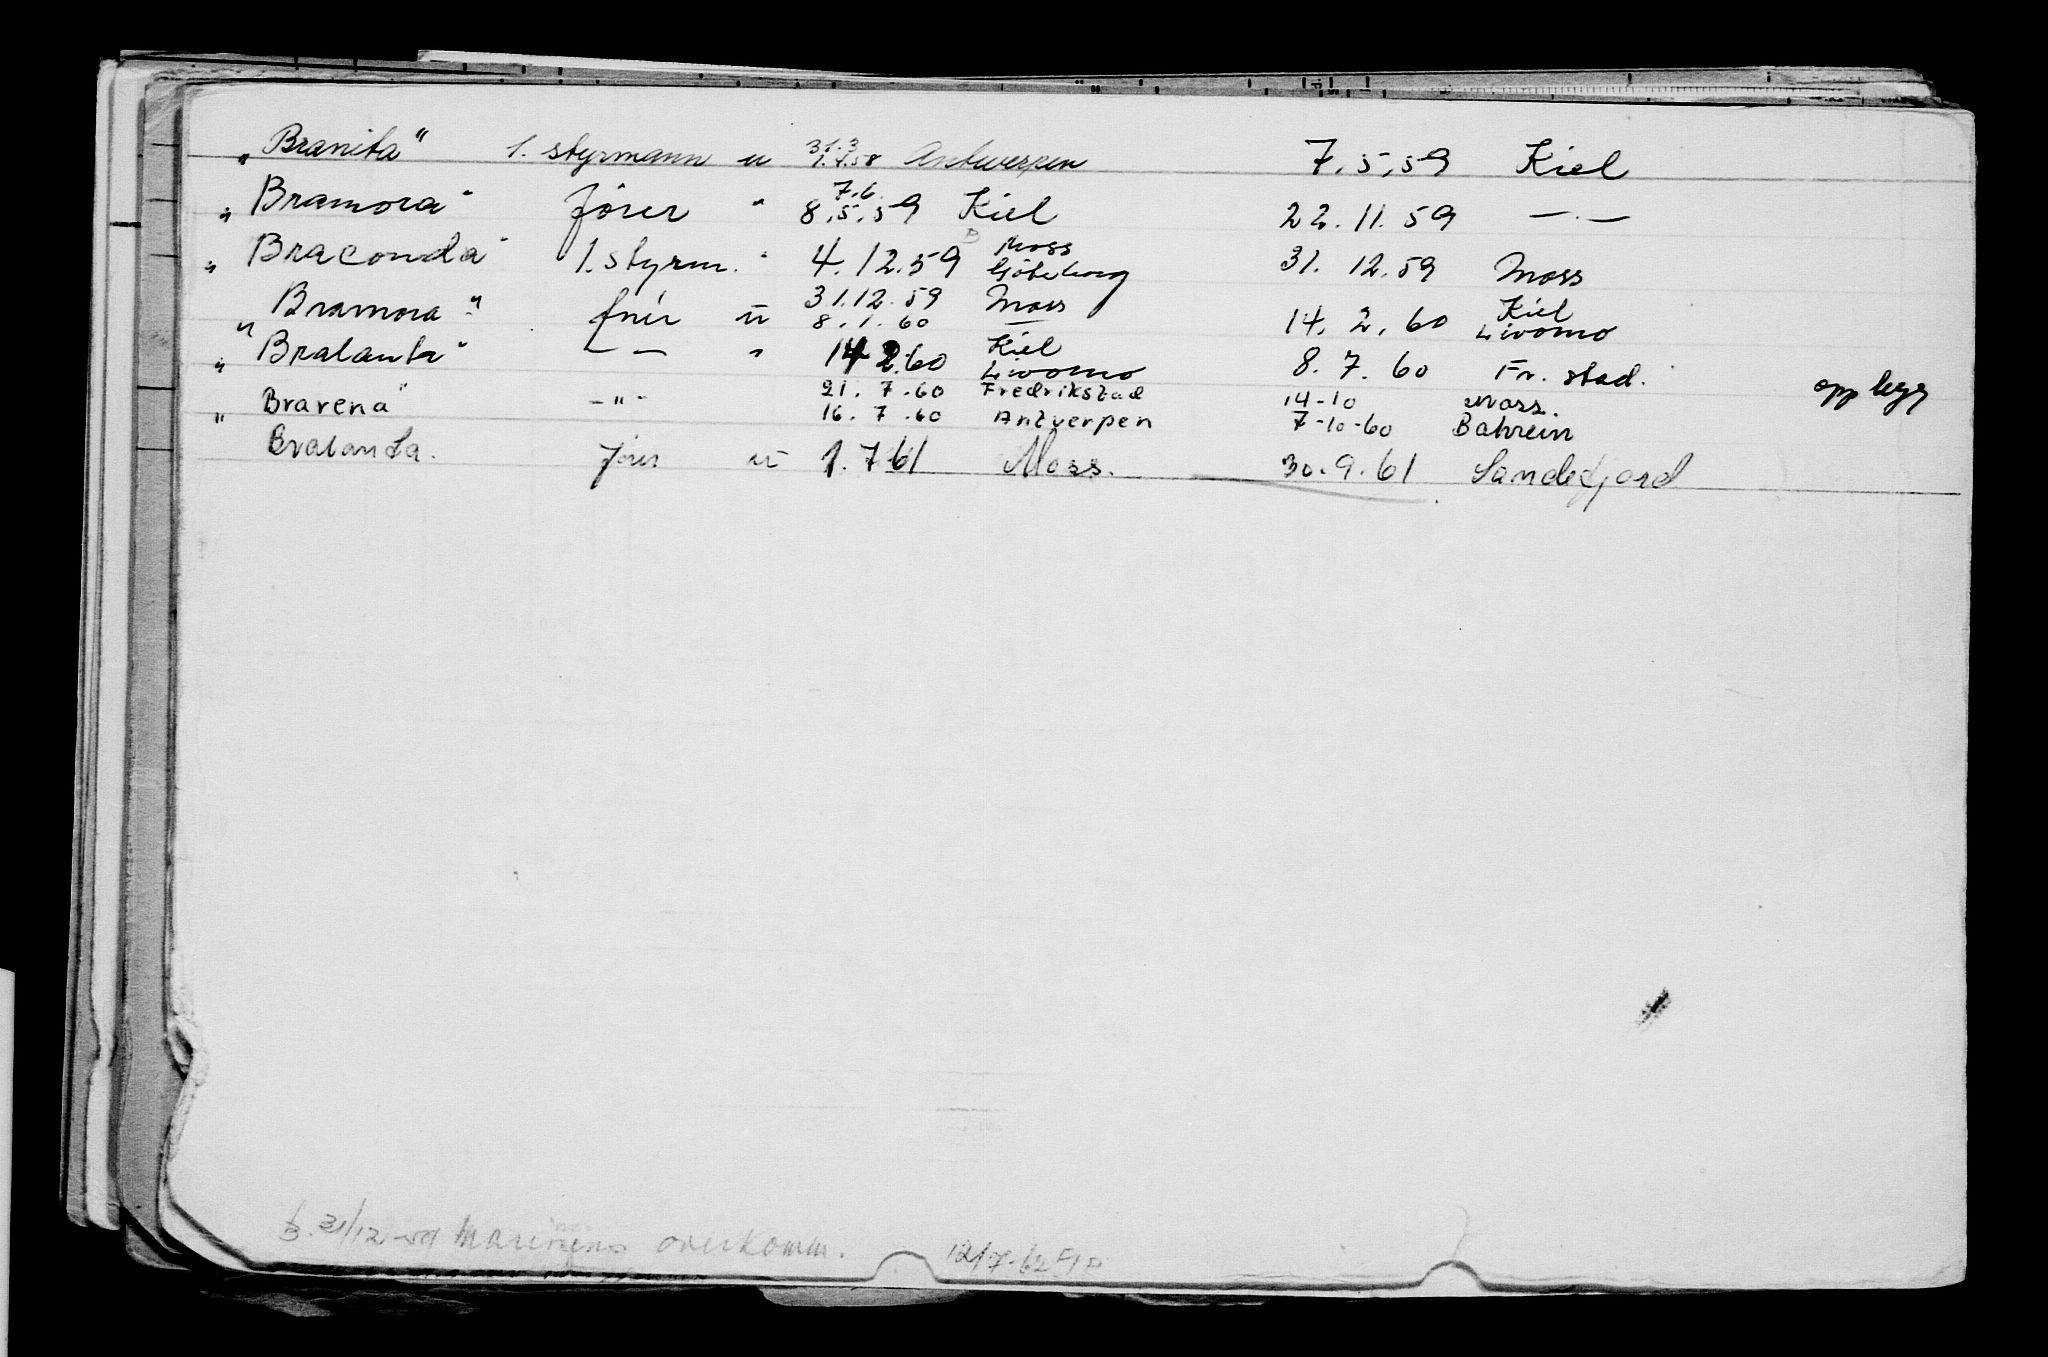 „Branita" 1. styrmann u 31.3 1.4.58 Antwerpen 7.5.59 Kiel
„Bramora" fører " 7.6. 8.5.59 Kiel 22.11.59 — · —
„Braconda" 1. styrm. " 4.12.59 Moss Göteborg 31.12.59 Moss
„Bramora" fører u 31.12.59 8.1.60 Moss — 14.2.60 Kiel Livorno
„Bralanta" — — " 14 2.60 Kiel Livorno 8.7.60 Fr.stad.
„Bravena" -"- 21.7.60 16.7.60 Fredrikstad Antverpen 14-10 7-10-60 Moss. Bahrein opplegg
Bralanta. fører u 1.7 61 Moss. 30.9.61 Sandefjord
31/12-59 overkomm. 12/7-62